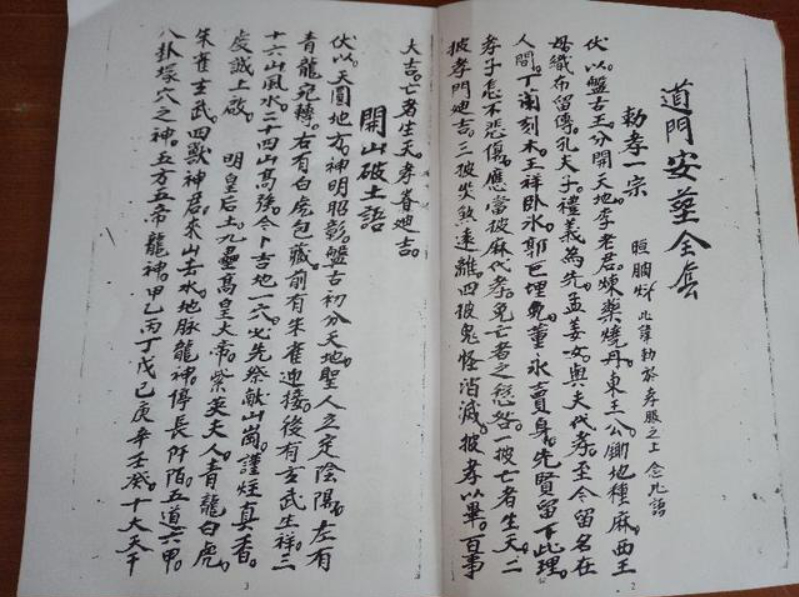 道門安塋全集
勅孝一宗 照胸 此諱勅於孝服之上念此語
伏以。盤古王。分開天地。李老君。煉藥燒丹。東王公。鋤地種麻。西王
母織布留傳。孔夫子。禮義為先。孟姜女。與夫代孝。至今留名在
人間。丁蘭刻木。王祥卧氷。郭巨埋兒。董永賣身。先賢留下此理。
孝子怎不悲傷。應當披麻代孝。免亡者之愆咎。一披亡者生天。二
披孝門迪吉。三披災煞遠離。四披鬼怪消滅。披孝以畢。百事
2
大吉。亡者生天。孝眷迪吉。
開山破土語
伏以。天圓地方。神明昭彰。盤古初分天地。聖人立定陰陽。左有
青龍宛轉。右有白虎包藏。前有朱雀迎接。後有玄武生祥。三
十六山風水。二十四山高強。今卜吉地一穴。必先祭献山崗。謹炷真香。
虔誠上啟。 明皇后土。九壘高皇大帝。紫英夫人。青龍白虎。
朱雀玄武。四獸神君。来山去水。地脉龍神。停長阡陌。五道六甲。
八卦塚穴之神。五方五帝龍神。甲乙丙丁戊己庚辛壬癸。十大天干
3